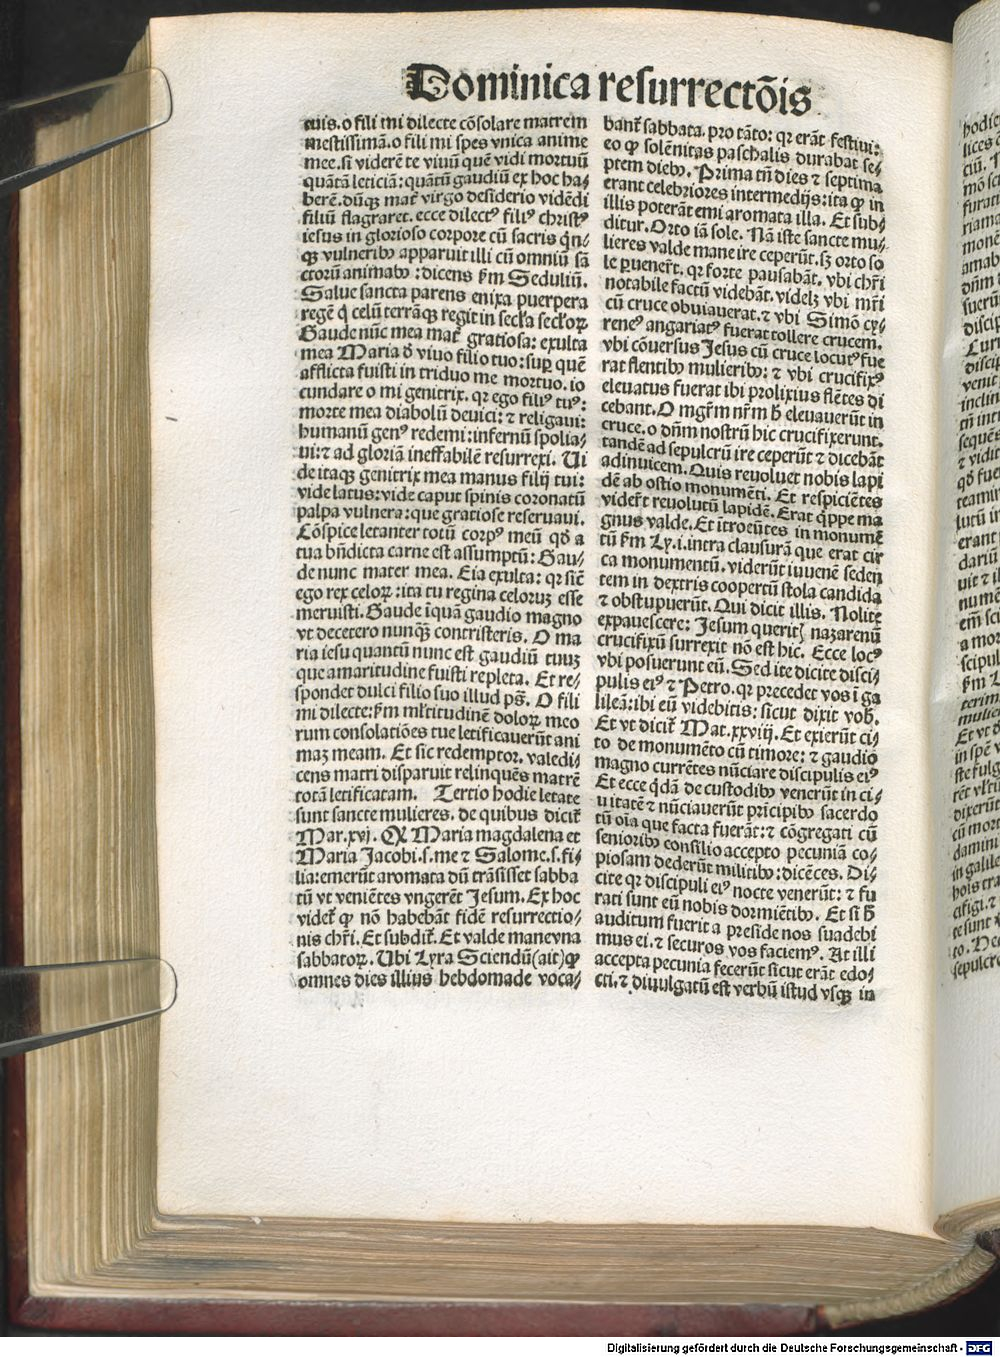 Dominica resurrectõis
tuis. o fili mi dilecte cõsolare matrem
mestissimã. o fili mi spes vnica anime
mee. si viderẽ te viuũ quẽ vidi mortuũ
quãtã leticiã: quãtũ gaudiũ ex hoc ha⸗
berẽ. dũqꝫ mať virgo desiderio vidẽdi
filiũ flagraret. ecce dilectꝰ filiꝰ christꝰ
iesus in glorioso corpore cũ sacris q̃n⸗
qꝫ vulneribꝰ apparuit illi cũ omniũ sã
ctorũ animabꝰ: dicens ẜm Seduliũ.
Salue sancta parens enixa puerpera
regẽ q̃ celũ terrãqꝫ regit in secľa secľoꝝ
Gaude nũc mea mať gratiosa: exulta
mea Maria ď viuo filio tuo: suꝑ quẽ
afflicta fuisti in triduo me mortuo. io
cundare o mi genitrix. qꝛ ego filiꝰ tuꝰ:
morte mea diabolũ deuici: ⁊ religaui:
humanũ genꝰ redemi: infernũ spolia⸗
ui: ⁊ ad gloriã ineffabilẽ resurrexi. Ui
de itaqꝫ genitrix mea manus filij tui:
vide latus: vide caput spinis coronatũ
palpa vulnera: que gratiose reseruaui.
Cõspice letanter totũ corpꝰ meũ qď a
tua bñdicta carne est assumptũ: Gau⸗
de nunc mater mea. Eia exulta: qꝛ sič
ego rex celoꝝ: ita tu regina celoruꝫ esse
meruisti. Gaude ĩquã gaudio magno
vt decetero nunq̃ꝫ contristeris. O ma
ria iesu quantũ nunc est gaudiũ tuuꝫ
que amaritudine fuisti repleta. Et re⸗
spondet dulci filio suo illud pš. O fili
mi dilecte: ẜm mľtitudinẽ doloꝝ meo
rum consolatiões tue letificauerũt ani
maꝫ meam. Et sic redemptor. valedi⸗
cens matri disparuit relinquẽs matrẽ
totã letificatam. Tertio hodie letate
sunt sancte mulieres. de quibus diciť
Mar.xvj. Qꝛ Maria magdalena et
Maria Jacobi.s.me ⁊ Salome.s.fi⸗
lia: emerũt aromata dũ trãsisset sabba
tũ vt veniẽtes vngerẽt Jesum. Ex hoc
videť ꝙ nõ habebãt fidẽ resurrectio⸗
nis chři. Et subdiť. Et valde mane vna
sabbatoꝝ. Ubi Lyra Sciendũ (ait) ꝙ
omnes dies illius hebdomade voca⸗
banť sabbata. pro tãto: qꝛ erãt festiui:
eo ꝙ solẽnitas paschalis durabat se⸗
ptem diebꝰ. Prima tñ dies ⁊ septima
erant celebriores intermedijs: ita ꝙ in
illis poterãt emi aromata illa. Et sub⸗
ditur. Orto iã sole. Nã iste sancte mu⸗
lieres valde mane ire ceperũt. sꝫ orto so
le ꝑueneř. qꝛ forte pausabãt. vbi chři
notabile factũ videbãt. videlꝫ vbi mři
cũ cruce obuiauerat. ⁊ vbi Simõ cy⸗
reneꝰ angariatꝰ fuerat tollere crucem.
vbi cõuersus Jesus cũ cruce locutꝰ fue
rat flentibꝰ mulieribꝰ: ⁊ vbi crucifixꝰ
eleuatus fuerat ibi prolixius flẽtes di
cebant. O mgřm nřm ħ eleuauerũt in
cruce. o dñm nostrũ hic crucifixerunt.
tandẽ ad sepulcrũ ire ceperũt ⁊ dicebãt
adinuicem. Quis reuoluet nobis lapi
dẽ ab ostio monumẽti. Et respiciẽtes
videřt reuolutũ lapidẽ. Erat q̃ppe ma
gnus valde. Et ĩtroeũtes in monumẽ
tũ ẜm Ly.i.intra clausurã que erat cir
ca monumentũ. viderũt iuuenẽ seden
tem in dextris coopertũ stola candida
⁊ obstupuerũt. Qui dicit illis. Nolite
expauescere: Jesum queritꝭ nazarenũ
crucifixũ surrexit nõ est hic. Ecce locꝰ
vbi posuerunt eũ. Sed ite dicite disci⸗
pulis eiꝰ ⁊ Petro. qꝛ precedet vos ĩ ga
lileã: ibi eũ videbitis: sicut dixit vob̃.
Et vt diciť Mat.xxviij. Et exierũt ci⸗
to de monumẽto cũ timore: ⁊ gaudio
magno currẽtes nũciare discipulis eiꝰ
Et ecce q̃dã de custodibꝰ venerũt in ci⸗
uitatẽ ⁊ nũciauerũt prĩcipibꝰ sacerdo
tũ oĩa que facta fuerãt: ⁊ cõgregati cũ
senioribꝰ consilio accepto pecuniã co⸗
piosam dederũt militibꝰ: dicẽtes. Di⸗
cite qꝛ discipuli eiꝰ nocte venerũt: ⁊ fu
rati sunt eũ nobis dormiẽtibꝰ. Et si ħ
auditum fuerit a preside nos suadebi
mus ei. ⁊ securos vos faciemꝰ. At illi
accepta pecunia fecerũt sicut erãt edo⸗
cti. ⁊ diuulgatũ est verbũ istud vsqꝫ in
Digitalisierung gefördert durch die Deutsche Forschungsgemeinschaft - DFG